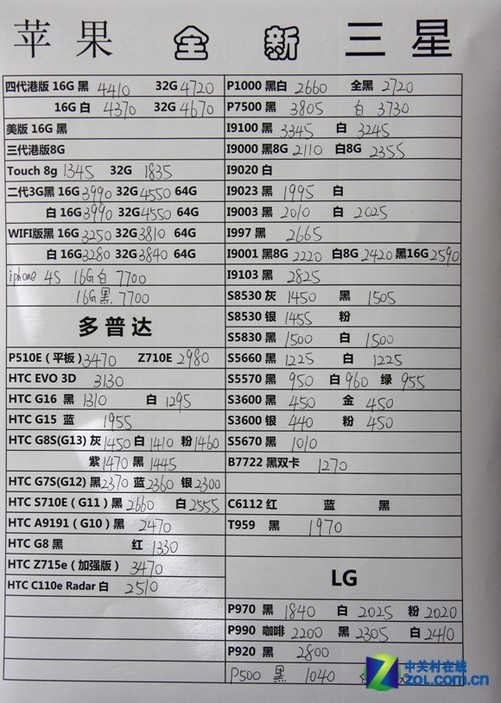 苹果 全新 三星
四代港版 16G 黑 4410 32G 4720
16G 白 4370 32G 4670
美版 16G 黑
三代港版8G
Touch 8g 1345 32G 1835
二代3G黑 16G 3990 32G 4550 64G
白 16G 3990 32G 4550 64G
WIFI版黑 16G 3250 32G 3810 64G
白 16G 3280 32G 3840 64G
iphone 4S 16G 白 7700
16G 黑 7700
多普达
P510E(平板) 3470 Z710E 2980
HTC EVO 3D 3130
HTC G16 黑 1310 白 1295
HTC G15 蓝 1955
HTC G8S(G13) 灰 1450 白 1410 粉 1460
紫 1470 黑 1445
HTC G7S(G12) 黑 2370 蓝 2360 银 2300
HTC S710E (G11) 黑 2660 白 2555
HTC A9191 (G10) 黑 2470
HTC G8 黑 红 1330
HTC Z715e (加强版) 3470
HTC C110e Radar 白 2510
P1000 黑白 2660 全黑 2720
P7500 黑 3805 白 3730
I9100 黑 3345 白 3245
I9000 黑8G 2110 白8G 2355
I9020 白
I9023 黑 1995 白
I9003 黑 2010 白 2025
I997 黑 2665
I9001 黑8G 2220 白8G 2420 黑16G 2590
I9103 黑 2825
S8530 灰 1450 黑 1505
S8530 银 1455 粉
S5830 黑 1500 白 1500
S5660 黑 1225 白 1225
S5570 黑 950 白 960 绿 955
S3600 黑 450 金 450
S3600 银 440 粉 450
S5670 黑 1010
B7722 黑双卡 1270
C6112 红 蓝 黑
T959 黑 1970
LG
P970 黑 1840 白 2025 粉 2020
P990 咖啡 2200 黑 2305 白 2410
P920 黑 2800
P500 黑 1040
中关村在线
zol.com.cn